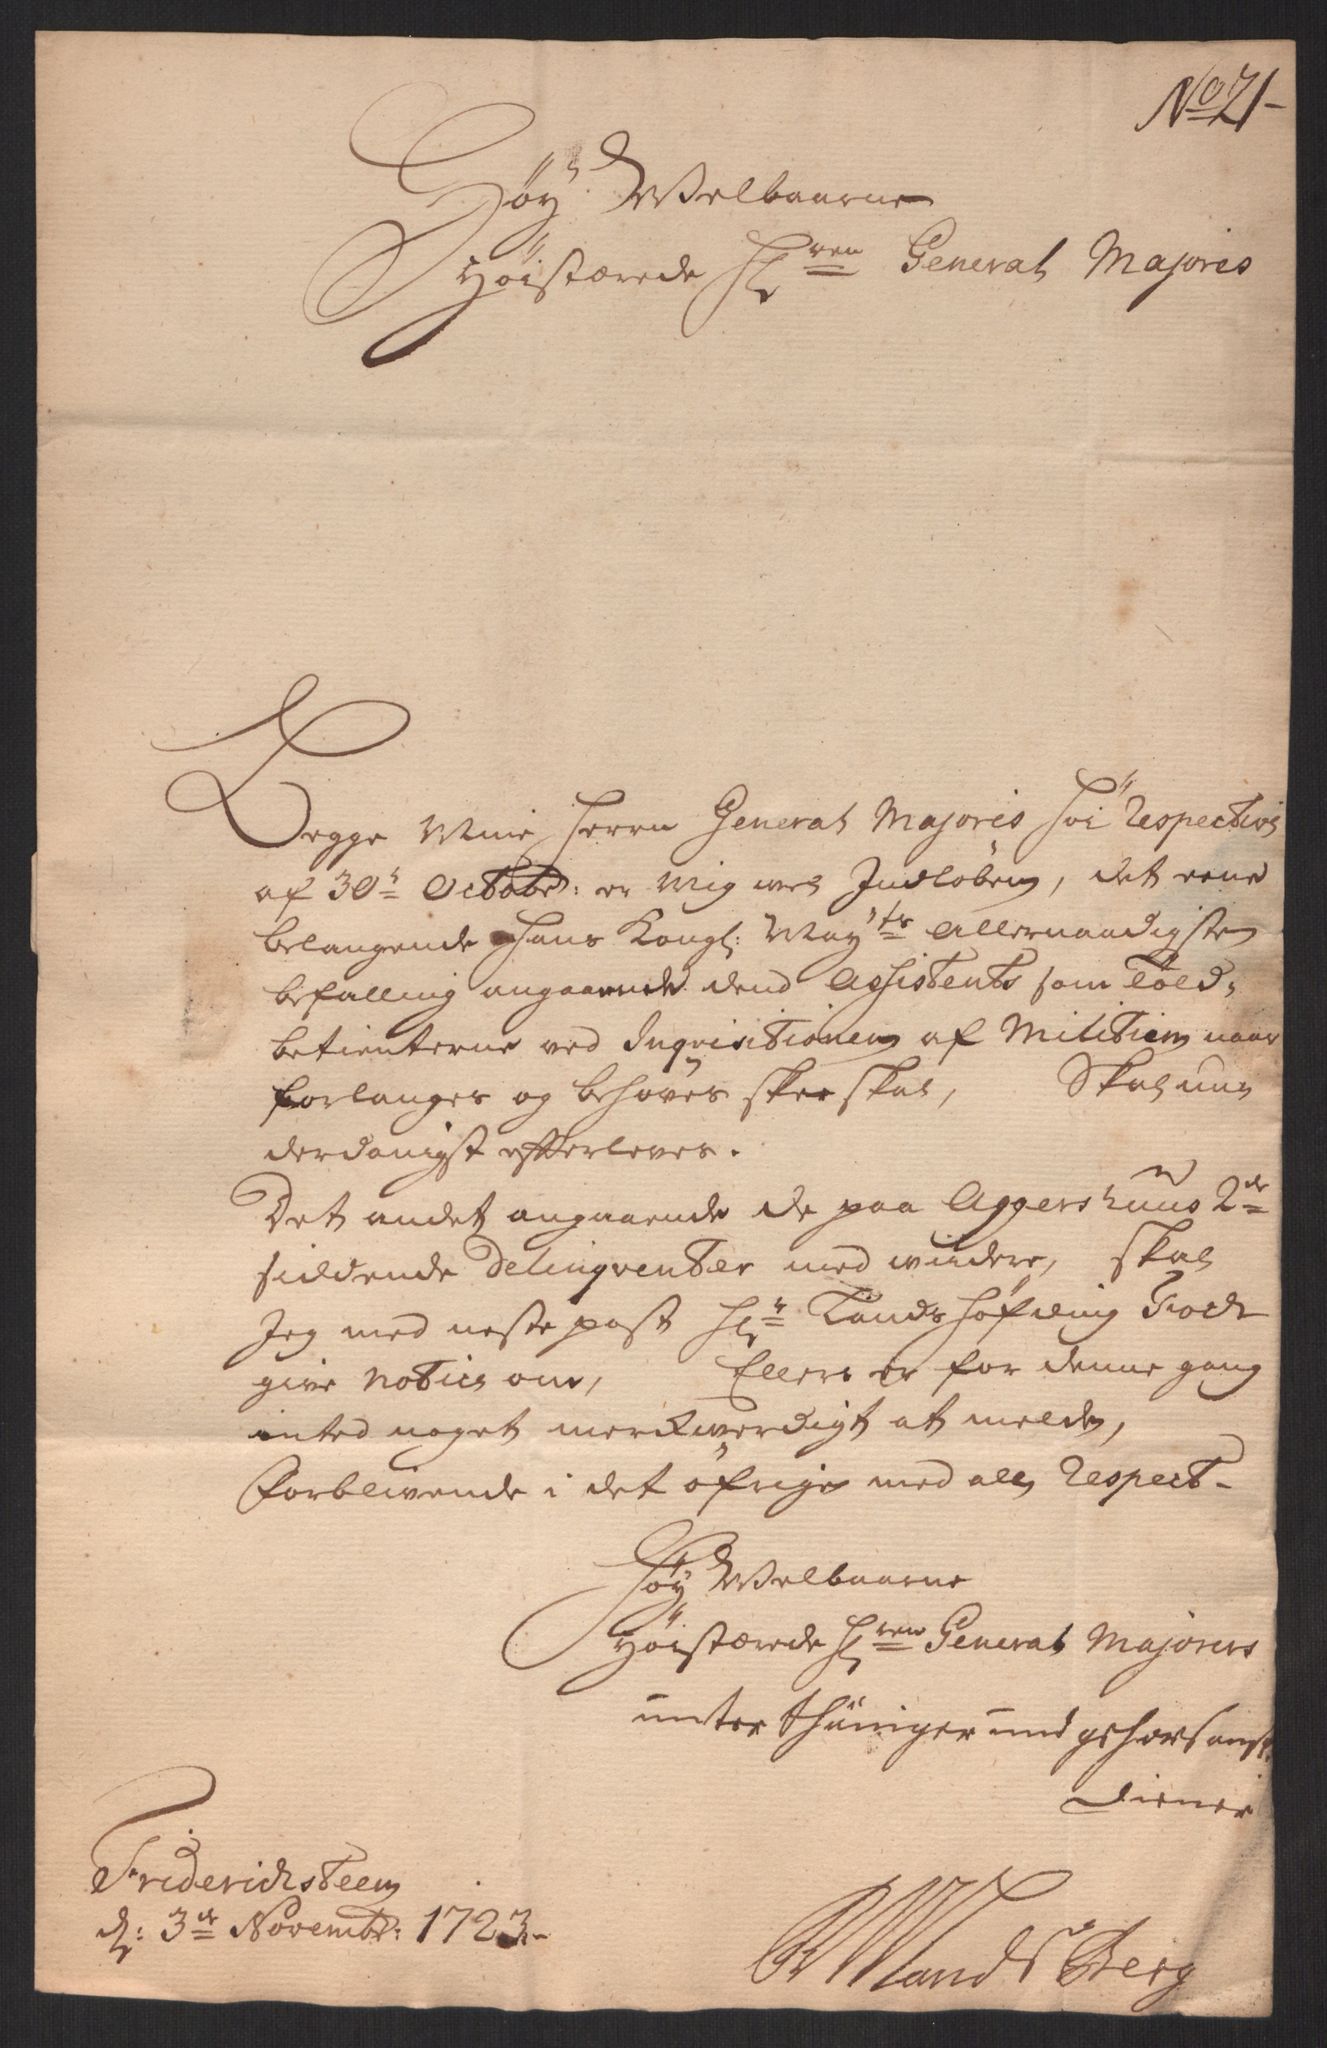 No 21-
Höy Welbaarne
Höistærede Hr ren General Majoris
Begge Mine Herrn General Majoris höi Respective
af 30te Octobr: er mig vel Indlöben, det eene
belangende Hans Kongl: May ts Allernaadigste
befalling angaaende dend Assistents som Told-
betienterne ved Inqvisitionen af Militien naar
forlanges og behöves skee skal, Skal un-
derdanigst efterleves.
Det andet angaaende de paa Aggershuus 2de
siddende Delinqventer med videre, skal
Jeg med neste post Hr Landshöfding
give Notice om, Ellers er for denne gang
inted noget merckverdigt at melde,
Forblivende i det öfrige med all Respect-
Höy Welbaarne
Höistærede Hr ren General Majorers
unterthäniger und gehorsamst.
Diener
Friderichsteen
d: 3de Novembr: 1723.-
Landsberg